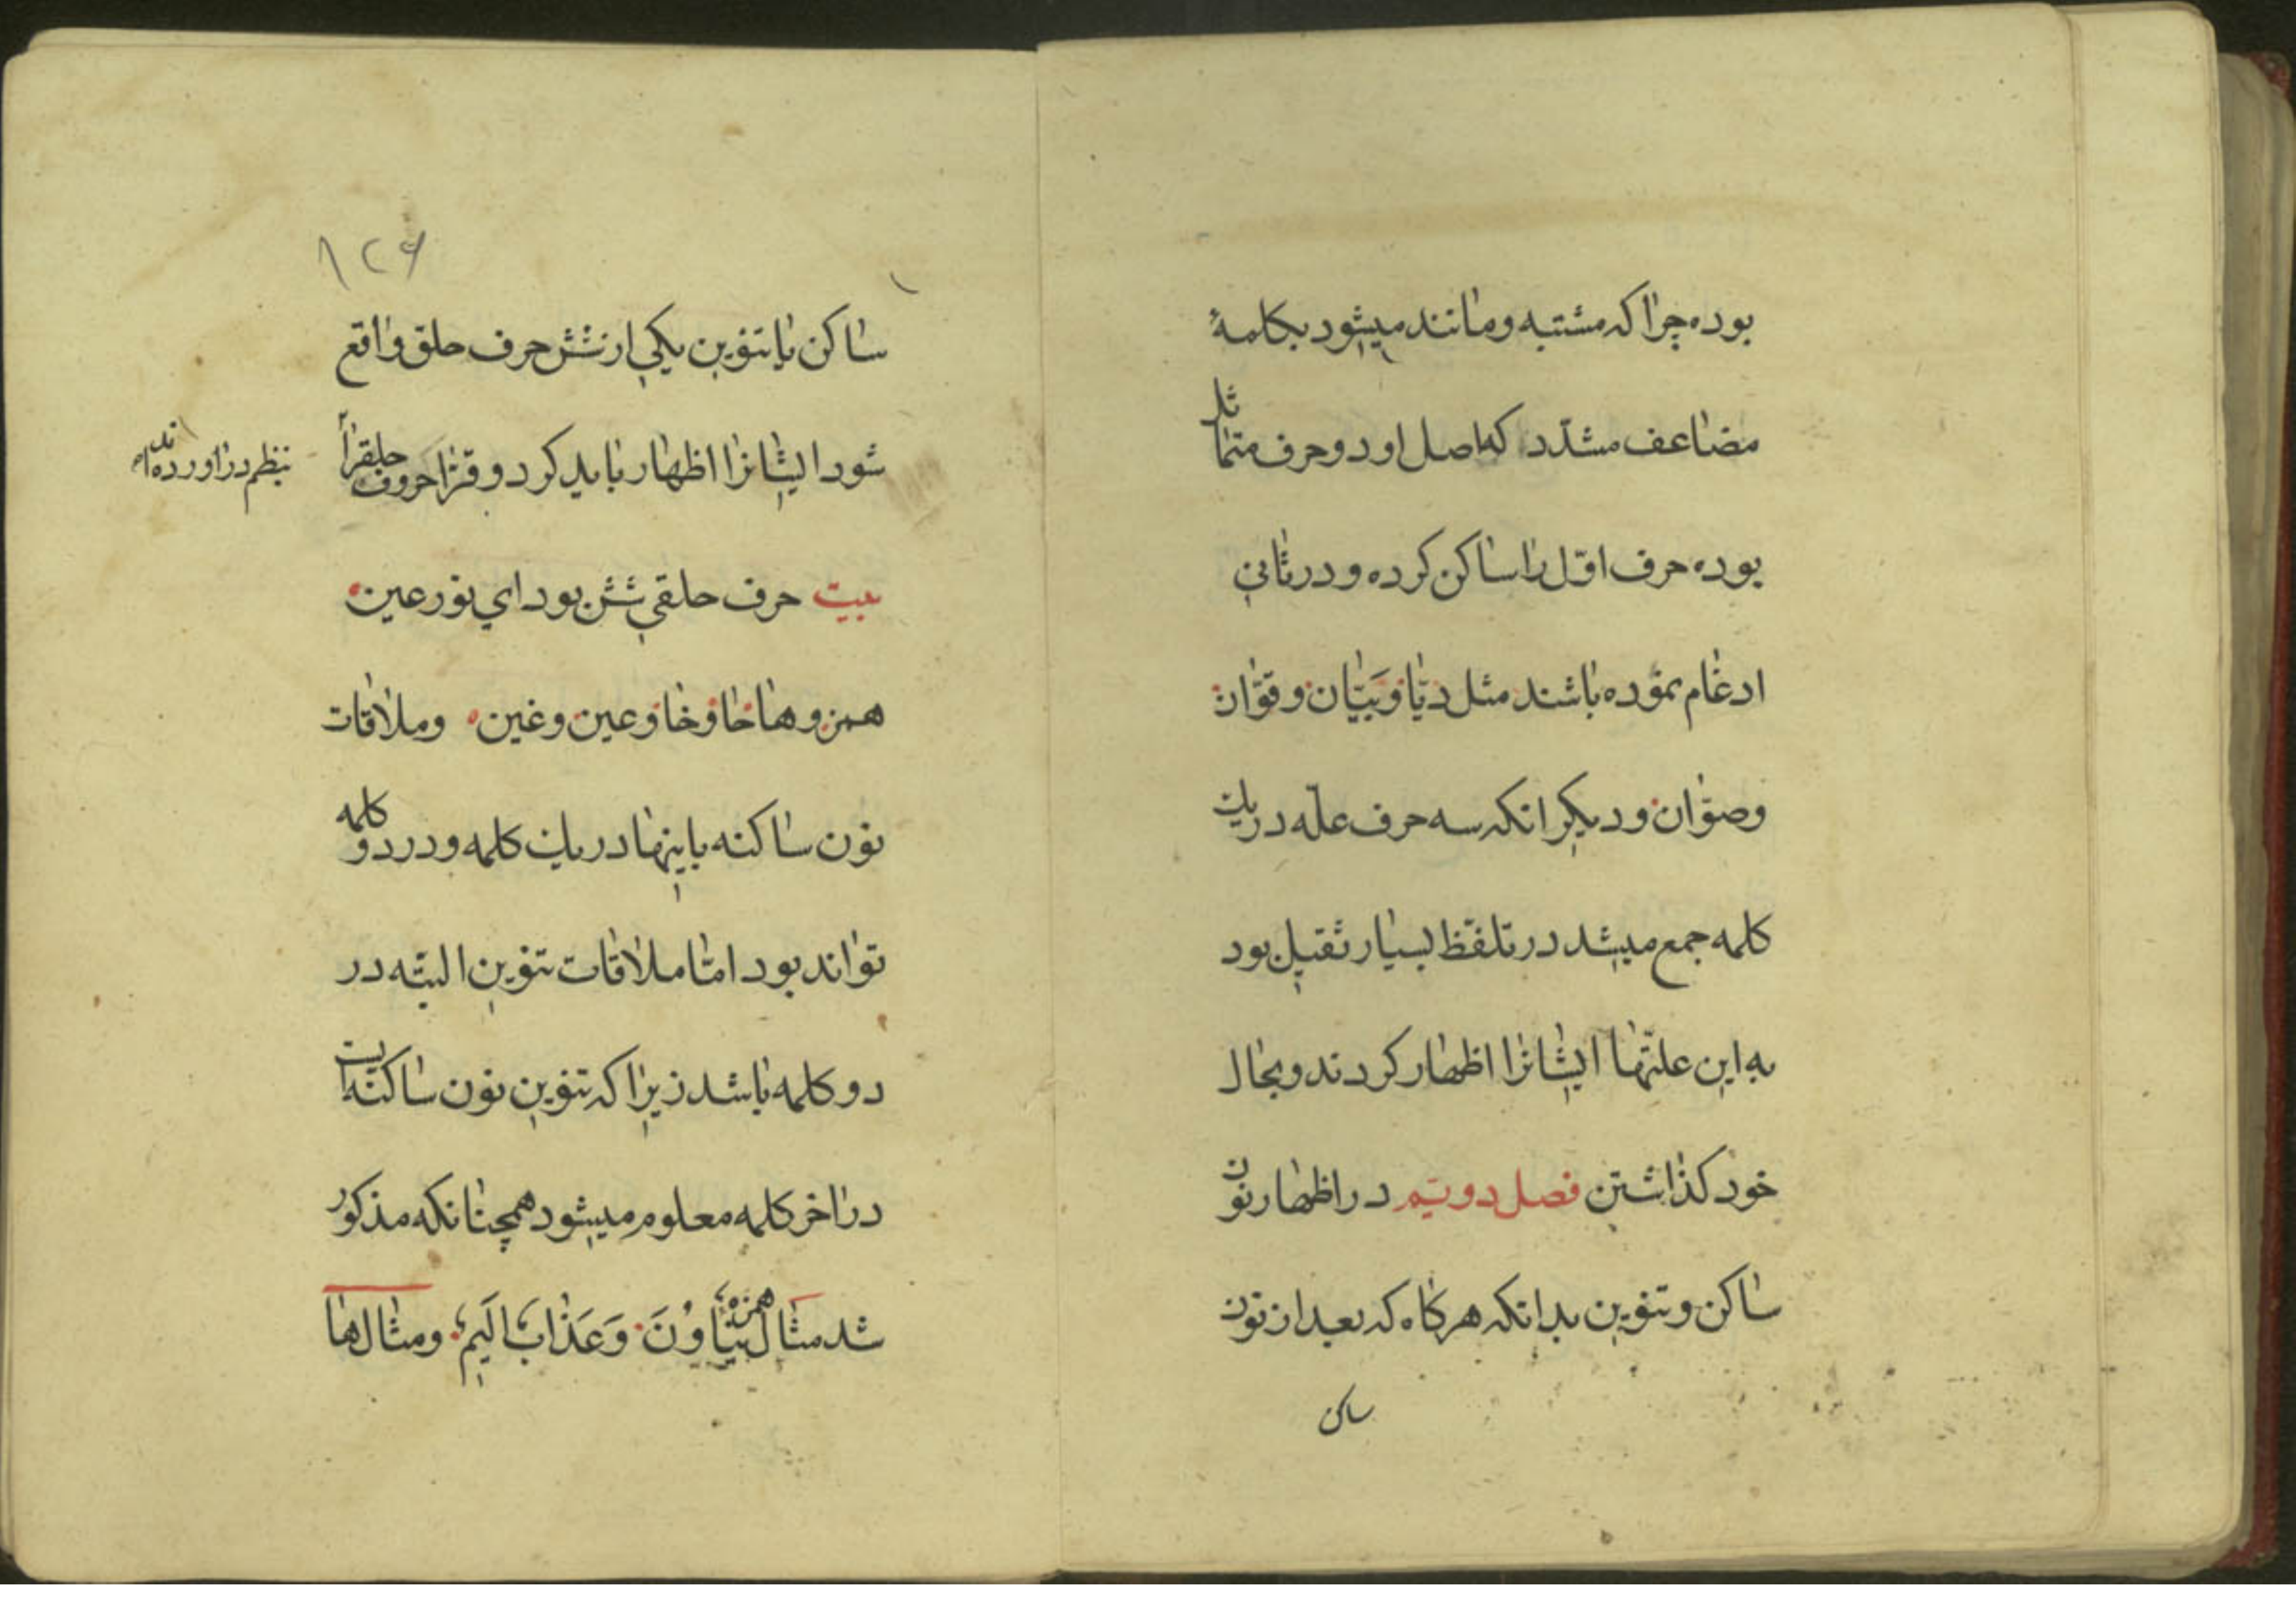 بوده چرا که مشتبه و مانند میشود بکلمهٔ
مضاعف مشدّد که اصل او دو حرف متماثل
بوده حرف اوّل را ساکن کرده و در ثانی
ادغام نموده باشند مثل دیّا و بیّان و قوّان
وصوّان و دیکر انکه سه حرف علّه در یک
کلمه جمع میشد در تلفّظ بسیار ثقیل بود
به این علّتها ایشانرا اظهار کردند و بحال
خود کذاشتن فصل دویّم در اظهار نون
ساکن و تنوین بدانکه هرکاه که بعد از نون
ساکن
۱۲۶
ساکن یا تنوین یکی از شش حرف حلق واقع
شود ایشانرا اظهار باید کرد و قرّا حروف حلقرا
بنظم دراورده اند
بیت حرف حلقی شش بود ای نور عین
همزه و ها حا و خا و عین و غین وملاقات
نون ساکنه باینها در یک کلمه و در دو کلمه
تواند بود امّا ملاقات تنوین البتّه در
دو کلمه باشد زیرا که تنوین نون ساکنه است
در اخر کلمه معلوم میشود همچنانکه مذکور
شد مثال همزه یَنْاَوْنَ وَعَذَابٌ اَلیمٌ و مثال ها